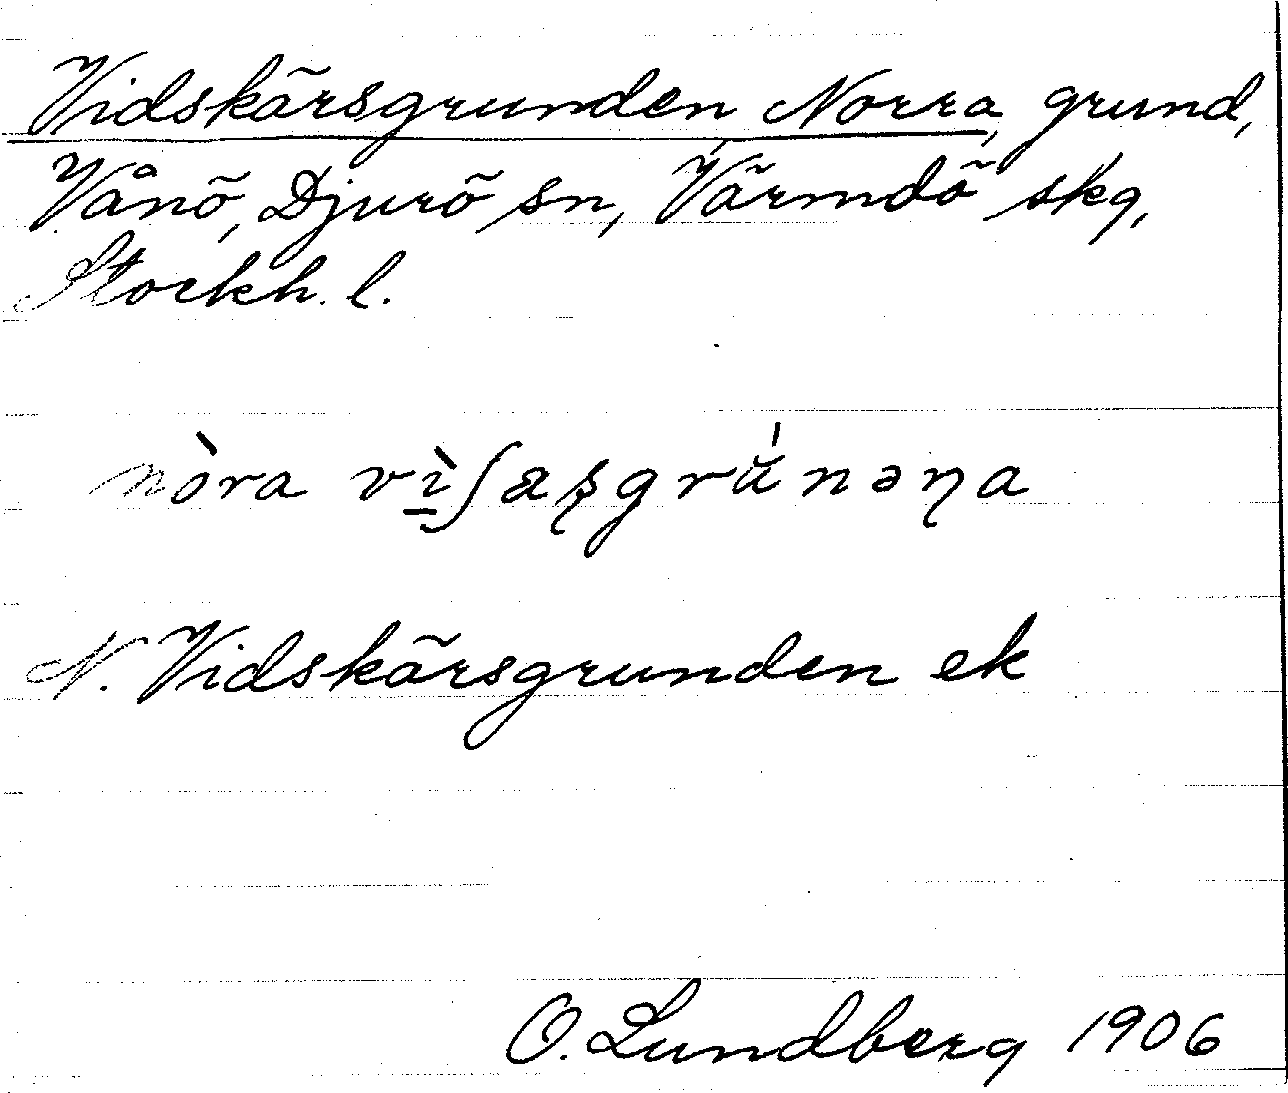 Vidskärsgrunden, Norra, grund,
Vånö, Djurö sn, Värmdö skg,
Stockh. l.
nòra vì̱ʃaʂgrŭ́nəɳa
N. Vidskärsgrunden ek
O. Lundberg 1906